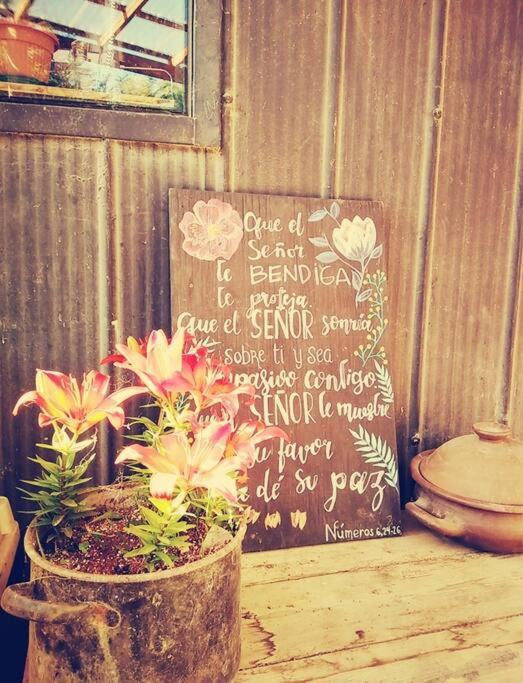 Que el
Señor
te BENDIGA
te proteja.
Que el SEÑOR sonría
sobre ti y sea
pasivo contigo
SEÑOR le muestre
su favor
dé su paz
Números 6,24-26